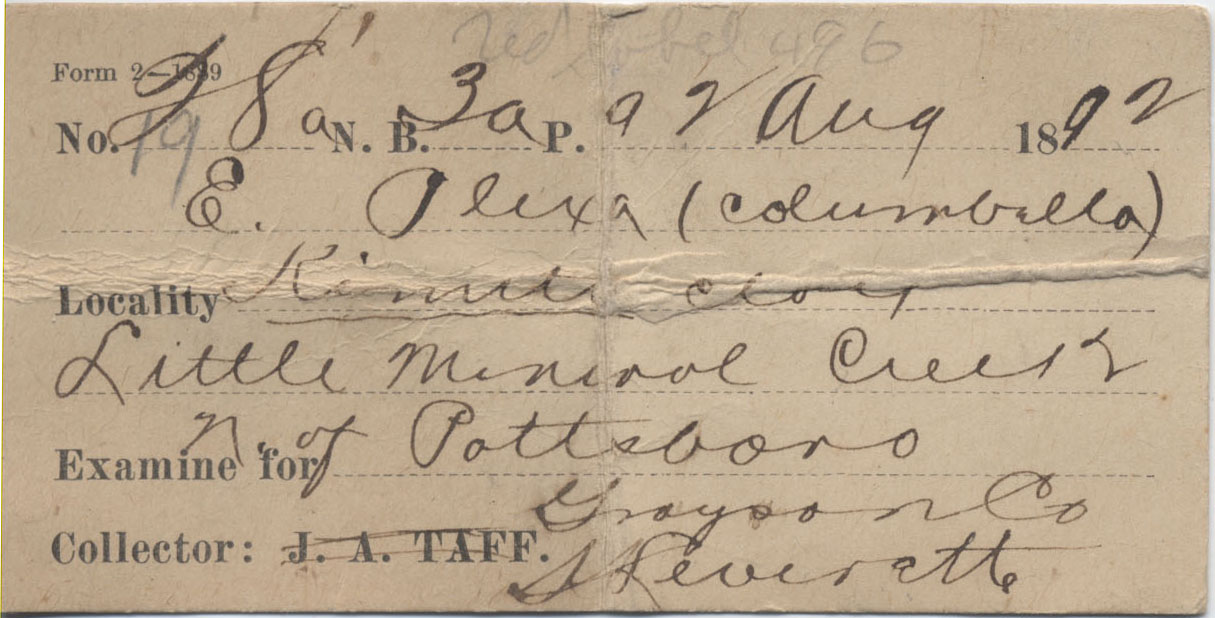 Red Label 496
Form 2—1889
No. 19 8a N. B. 3a P. 92 Aug 1892
E. Plexa (columbella)
Locality Kimiti clay
Little Mineral Creek
N. of Pottsboro
Examine for
Grayson Co
Collector: J. A. TAFF.
S Leverett